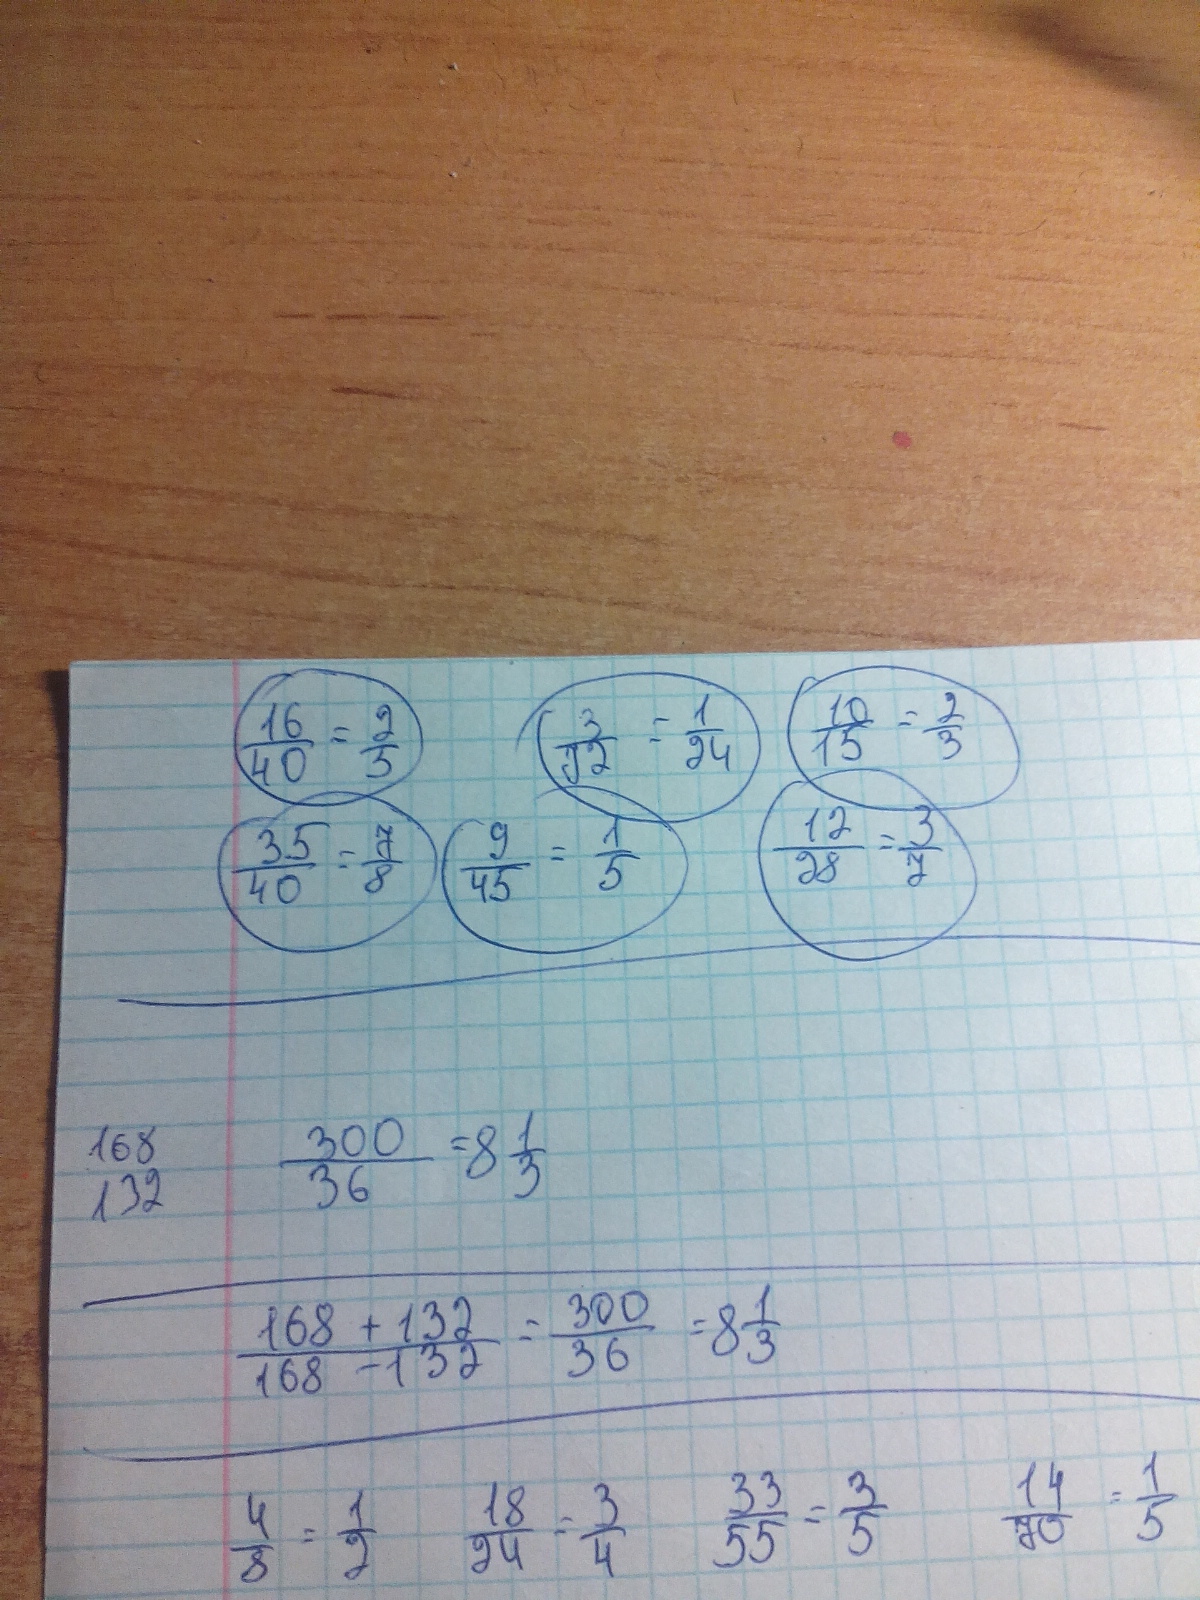 16/40 = 2/5 3/72 = 1/24 10/15 = 2/3
35/40 = 7/8 9/45 = 1/5 12/28 = 3/7
168
132
300/36 = 8 1/3
168 + 132/168 - 132 = 300/36 = 8 1/3
4/8 = 1/2 18/24 = 3/4 33/55 = 3/5 14/70 = 1/5